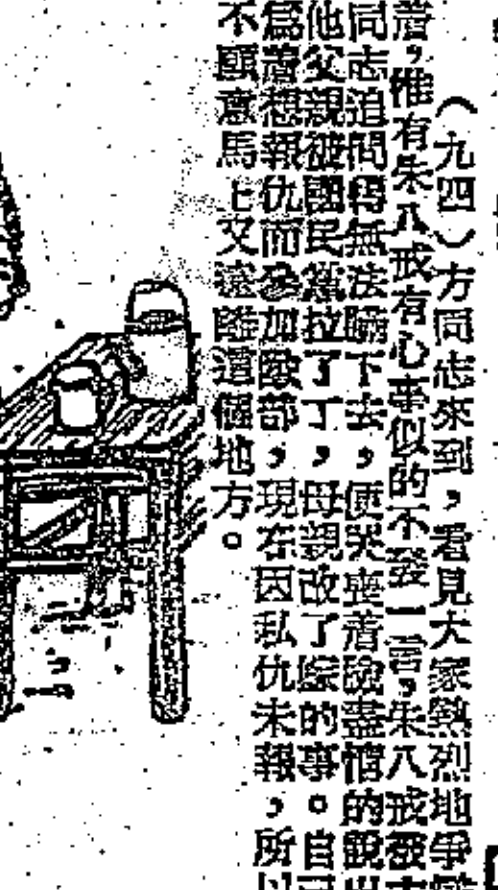 （九四）方同志來到，看見大家熱烈地爭
着，惟有朱八戒有心事似的不發一言，朱八戒被
同志追問得無法瞞下去，便哭喪着臉盡情的說出
他父親被國民黨拉了丁，母親改了嫁的事。自己
爲着想報仇而參加隊部，現在因私仇未報，所以
不願意馬上又遠離這個地方。